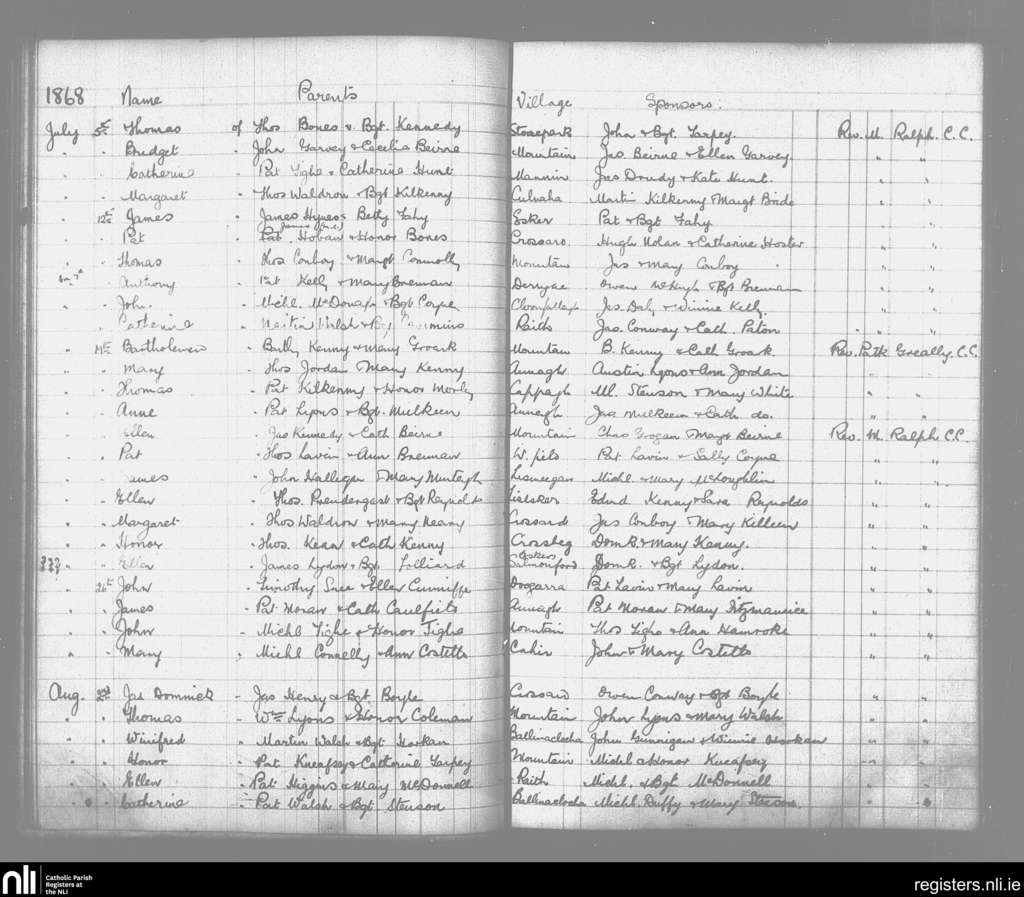 1868 Name Parents Village Sponsors.
July 5th Thomas of Thos Bones & Bgt. Kennedy Stonepark John & Bgt. Tarpey. Rev. M. Ralph. C.C.
" " Bridget " John Garvey & Cecelia Beirne Mountain Jas. Beirne & Ellen Garvey. " "
" " Catherine " Pat Tighe & Catherine Hunt Mannin Jas Drudy & Kate Hunt. " "
" " Margaret " Thos Waldron & Bgt Kilkenny Culnaha Martin Kilkenny & Margt Bride " "
" 12th James " James Hynes & Betty Fahy Esker Pat & Bgt Fahy " "
" " Pat " Hoban & Honor Bones Crossard Hugh Nolan & Catherine Foster " "
" " Thomas " Thos Conboy & Margt Connolly Mountain Jas & Mary Conboy " "
" " Anthony " Pat Kelly & Mary Brennan Derrynae Owen McHugh & Bgt Brennan " "
" " John " Michl. McDonagh & Bgt Coyne Jas. Daly & Winnie Kelly. " "
" " Catherine " Martin Walsh & Raith Jas. Conway & Cath. Paton " "
" 19th Bartholemew " Bartly Kenny & Mary Groark Mountain B. Kenny & Cath Groark Rev. Patk Greally. C.C.
" " Mary " Thos Jordan & Mary Kenny Annagh Austin Lyons & Ann Jordan " "
" " Thomas " Pat Kilkenny & Honor Morly Cappagh Ml. Stenson & Mary White " "
" " Anne " Pat Lyons & Bgt. Mulkeen Annagh Jas Mulkeen & Cath do. " "
" " Ellen " Jas Kennedy & Cath Beirne Mountain Chas Grogan & Margt Beirne Rev. M. Ralph C.C.
" " Pat " Thos Lavin & Ann Brennan W. fields Pat Lavin & Sally Coyne " "
" " James " John Halligan & Mary Murtagh Lisneegan Michl & Mary McLoughlin " "
" " Ellen " Thos. Prendergast & Bgt Reynolds Liskser Edwd Kenny & Sara Reynolds " "
" " Margaret " Thos Waldron & Mary Neary Crossard Jas Conboy & Mary Killeen " "
" " Honor " Thos. Kean & Cath Kenny Crossbeg Domk. & Mary Kenny. " "
??? " " Ellen " James Lydon & Bgt. Salmonford Domk. & Bgt Lydon. " "
" 26th John " Timothy Snee & Ellen Cunniffe Doogarra Pat Lavin & Mary Lavin " "
" " James " Pat Moran & Cath Caulfield Annagh Pat Moran & Mary Fitzmaurice " "
" " John " Michl Tighe & Honor Tighe Mountain Thos Tighe & Ann Hamroke " "
" " Mary " Michl Connelly & Ann Costello Cahir John & Mary Costello " "
Aug. 2nd Jas Dominick " Jas Henry & Bgt. Boyle Crossard Owen Conway & Bgt Boyle " "
" " Thomas " Wm Lyons & Honor Coleman Mountain John Lyons & Mary Walsh " "
" " Winifred " Martin Walsh & Bgt Horkan Ballinaclocha John Gunnigan & Winnie Horkan " "
" " Honor " Pat Kneafsey & Catherine Tarpey Mountain Michl & Honor Kneafsey " "
" " Ellen " Pat Higgins & Mary McDonnell Raith Michl. & Bgt McDonnell " "
" " Catherine " Pat Walsh & Bgt Stenson Ballinaclocha Michl. Duffy & Mary Stenson. " "
nli Catholic Parish
Registers at
the NLI
registers.nli.ie